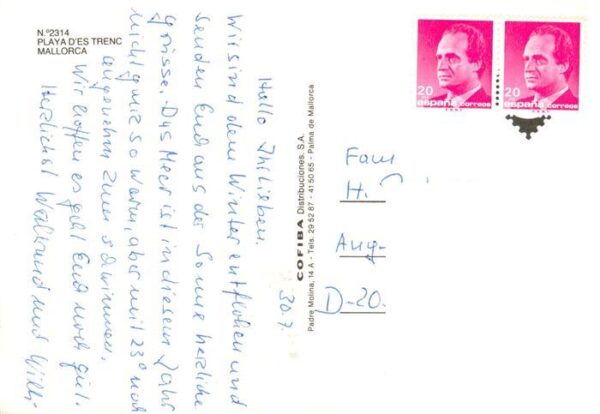 N.º2314
PLAYA D'ES TRENC
MALLORCA
Hallo Ihr Lieben.
30.7.
Wir sind dem Winter entflohen und
senden Euch aus der Sonne herzliche
Grüsse. Das Meer ist in diesem Jahr
nicht ganz so warm, aber mit 23° noch
angenehm zum schwimmen.
Wir hoffen es geht Euch noch gut.
Herzlichst Waltraud und Willi-
COFIBA Distribuciones, S.A.
Padre Molina, 14 A - Tels. 29 52 87 - 41 50 65 - Palma de Mallorca
20
españa correos
20
españa correos
Fam
H.
Aug-
D-20.